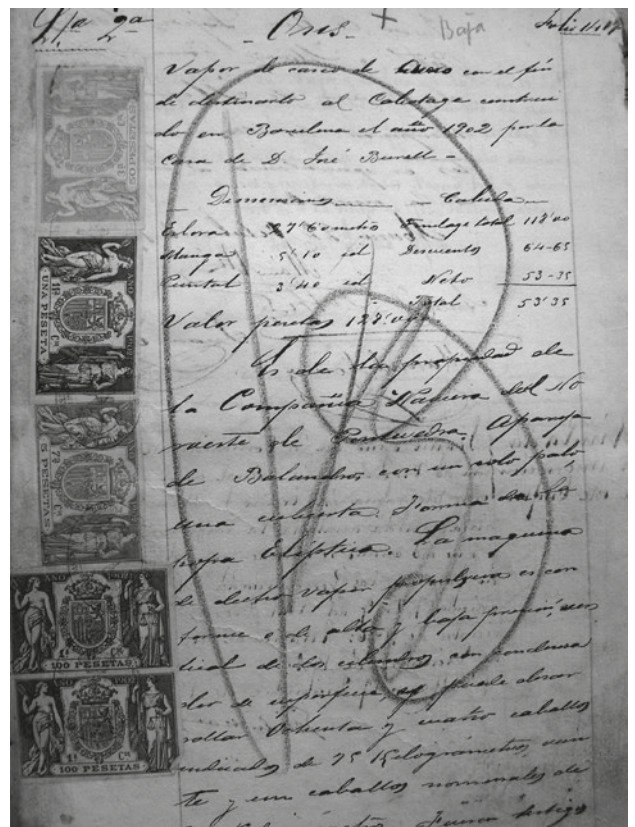 Lista 2ª - Ons - Baja Folio
Vapor de casco de acero con el fin
de destinarlo al Cabotage construi
do en Barcelona el año 1902 por la
Casa de D. José Burell -
Dimensiones - Cabida -
Eslora 27'60 metro Tonelage total 118'00
Manga 5'10 id Descuentos 64-65
Puntal 3'40 id Neto 53-35
Total 53'35
Valor pesetas
Es de la propiedad de
la Compañia Navera del No
roeste de Pontevedra, Apareja
de Balandro, con un solo palo
una cubierta. Forma de la
popa eliptica. La maquina
de dicho vapor propulsora es con
forme á de alta y baja presion, ver
tical de dos cilindros con condensa
dor de superficie, puede desar
rollar Ochenta y cuatro caballos
indicados de 75 Kilogrametros
te y un caballos nominales de
50 PESETAS
UNA PESETA
5 PESETAS
100 PESETAS
100 PESETAS